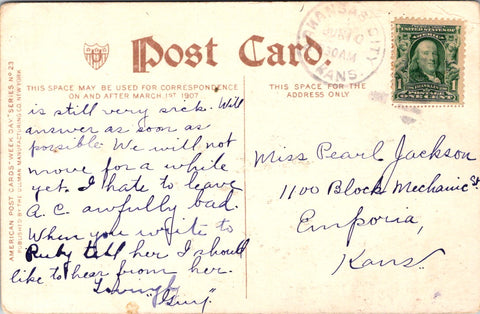 Post Card.
THIS SPACE MAY BE USED FOR CORRESPONDENCE
ON AND AFTER MARCH 1ST 1907
THIS SPACE IS FOR THE
ADDRESS ONLY
ARKANSAS CITY
KANS.
30AM
UNITED STATES OF AMERICA
1
AMERICAN POST CARDS "WEEK DAY" SERIES No 23
PUBLISHED BY THE ULLMAN MANUFACTURING CO. NEW YORK
is still very sick. Will
answer as soon as
possible. We will not
move for a while
yet. I hate to leave
A.C. awfully bad.
When you write to
Ruby tell her I should
like to hear from her.
Lovingly
Miss Pearl Jackson
1100 Block Mechanic St.
Emporia,
Kans.